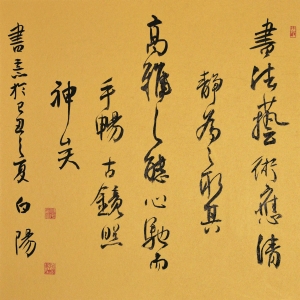 書法藝術應清
静為之取其
高雅之心馳而
手暢古鏡照
神矣
書於己丑之夏白陽